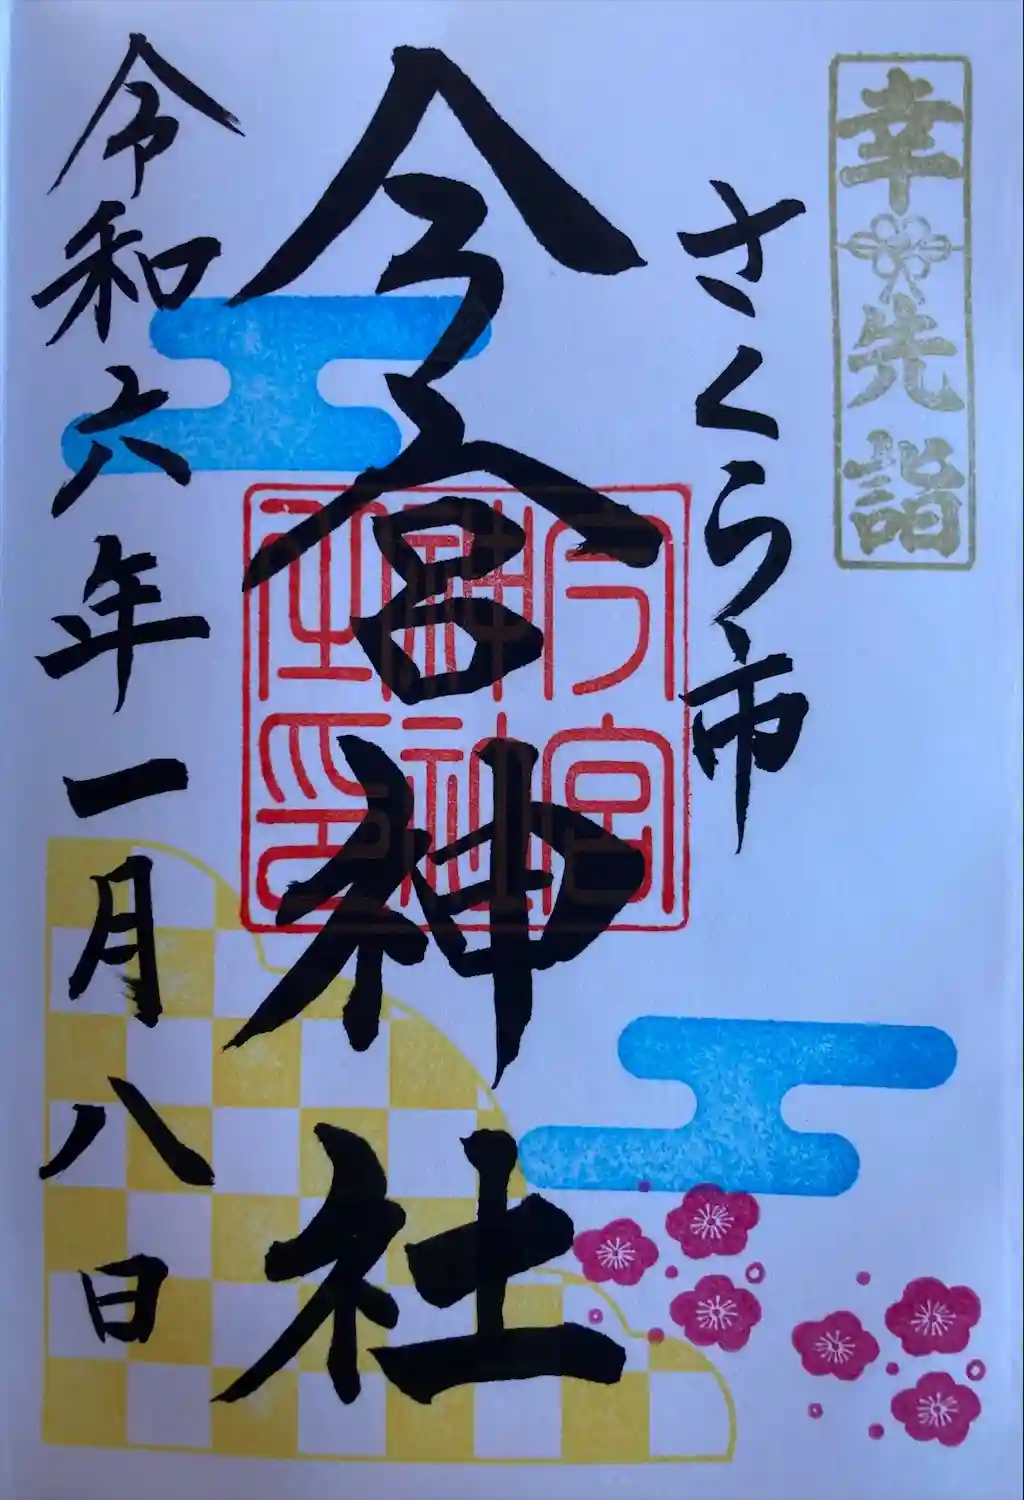 幸先詣
さくら市
今宮神社
今宮神社之印
令和六年一月八日